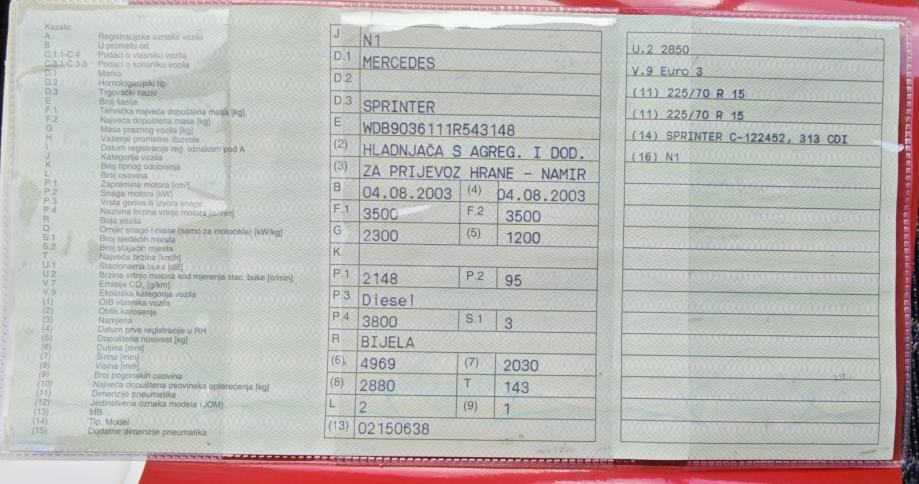 Kazalo:
A Registracijska oznaka vozila
B U prometu od
C.1.1-C.4 Podaci o vlasniku vozila
C.3.1-C.3.3 Podaci o korisniku vozila
D.1 Marka
D.2 Homologacijski tip
D.3 Trgovački naziv
E Broj šasije
F.1 Tehnička najveća dopuštena masa [kg]
F.2 Najveća dopuštena masa [kg]
G Masa praznog vozila [kg]
H Važenje prometne dozvole
I Datum registracije reg. oznakom pod A
J Kategorija vozila
K Broj tipnog odobrenja
L Broj osovina
P.1 Zapremina motora [cm³]
P.2 Snaga motora [kW]
P.3 Vrsta goriva ili izvora snage
P.4 Nazivna brzina vrtnje motora [o/min]
R Boja vozila
Q Omjer snage i mase (samo za motocikle) [kW/kg]
S.1 Broj sjedećih mjesta
S.2 Broj stajaćih mjesta
T Najveća brzina [km/h]
U.1 Stacionarna buka [dB]
U.2 Brzina vrtnje motora kod mjerenja stac. buke [o/min]
V.7 Emisija CO₂ [g/km]
V.9 Ekološka kategorija vozila
(1) OIB vlasnika vozila
(2) Oblik karoserije
(3) Namjena
(4) Datum prve registracije u RH
(5) Dopuštena nosivost [kg]
(6) Duljina [mm]
(7) Širina [mm]
(8) Visina [mm]
(9) Broj pogonskih osovina
(10) Najveća dopuštena osovinska opterećenja [kg]
(11) Dimenzije pneumatika
(12) Jedinstvena oznaka modela (JOM)
(13) MB
(14) Tip, Model
(15) Dodatne dimenzije pneumatika
J N1
D.1 MERCEDES
D.2
D.3 SPRINTER
E WDB9036111R543148
(2) HLADNJAČA S AGREG. I DOD.
(3) ZA PRIJEVOZ HRANE - NAMIR
B 04.08.2003 (4) 04.08.2003
F.1 3500 F.2 3500
G 2300 (5) 1200
K
P.1 2148 P.2 95
P.3 Diesel
P.4 3800 S.1 3
R BIJELA
(6) 4969 (7) 2030
(8) 2880 T 143
L 2 (9) 1
(13) 02150638
U.2 2850
V.9 Euro 3
(11) 225/70 R 15
(11) 225/70 R 15
(14) SPRINTER C-122452, 313 CDI
(16) N1